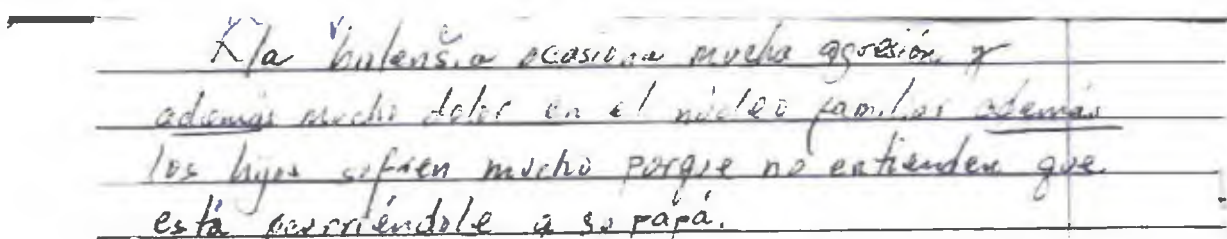 la bulensia ocasiona mucha agresión y
además mucho dolor en el núcleo familiar además
los hijos sufren mucho porque no entienden que
está ocurriéndole a su papá.